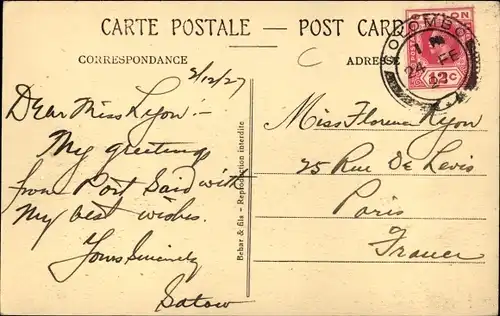 CARTE POSTALE - POST CARD
CEYLON
COLOMBO
24 FE
12c
CORRESPONDANCE
ADRESSE
C
2/12/27
Dear Miss Lyon :-
My greetings
from Port Said with
My best wishes.
Yours Sincerely
Satow
Behar & fils - Reproduction interdite
Miss Florence Lyon
25 Rue De Levis
Paris
France